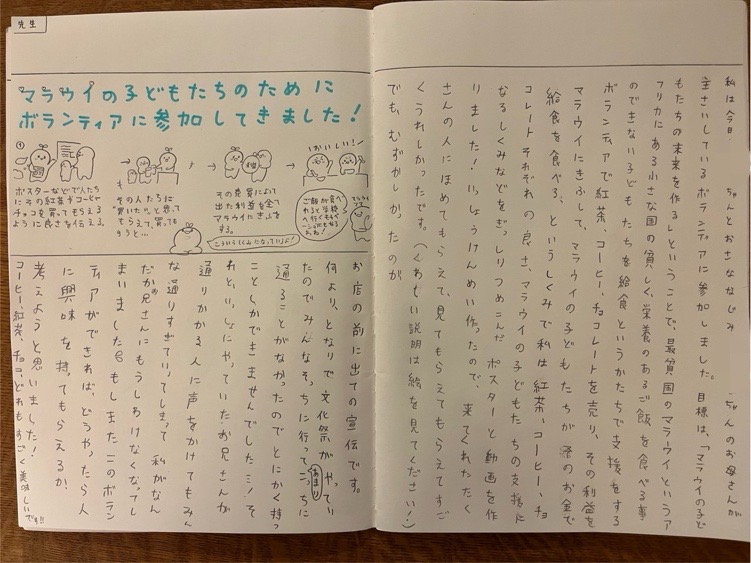 先生
マラウイの子どもたちのために
ボランティアに参加してきました!
①
ポスターなどで人たち
にその紅茶やコーヒー
チョコを買ってもらえる
ように良さを伝える。
その人たちに
買いたいと思って
もらえて、買っても
らうと…
その売買によって
出た利益を全て
マラウイにきふ
する。
おいしい!
ご飯が食べ
れると学校
へ行く
よね!
マラウイ
こういうしくみになっているよ!
私は今日 ちゃんとおさななじみ ちゃんのお母さんが
主さいしているボランティアに参加しました。目標は、「マラウイの子ど
もたちの未来を作る」ということで、最貧国のマラウイというア
フリカにある小さな国の貧しく、栄養のあるご飯を食べる事
のできない子どもたちを給食というかたちで支援をする
ボランティアで紅茶、コーヒー、チョコレートを売り、その利益を
マラウイにきふして、マラウイの子どもたちがそのお金で
給食を食べる、というしくみで私は紅茶、コーヒー、チョ
コレートそれぞれの良さ、マラウイの子どもたちの支援に
なるしくみなどをぎっしりつめこんだ ポスターと動画を作
りました!いっしょうけんめい作ったので、来てくれたたく
さんの人にほめてもらえて、見てもらえてもらえてすご
くうれしかったです。(くわしい説明は絵を見てください!)
でも、むずかしかったのが
お店の前に出ての宣伝です。
何より、となりで文化祭がやってい
たのでみんなそっちに行ってこっちに
あまり
通ることがなかったのでとにかく待つ
ことしかできませんでした…!そ
れといっしょにやっていたお兄さんが
通りかかる人に声をかけてもみん
な通りすぎていってしまって 私がなん
だかお兄さんにもうしわけなくなってし
まいました もしまたこのボラン
ティアができれば、どうやったら人
に興味を持ってもらえるか、
考えようと思いました!
コーヒー、紅茶、チョコ、どれもすごく美味しいです!!